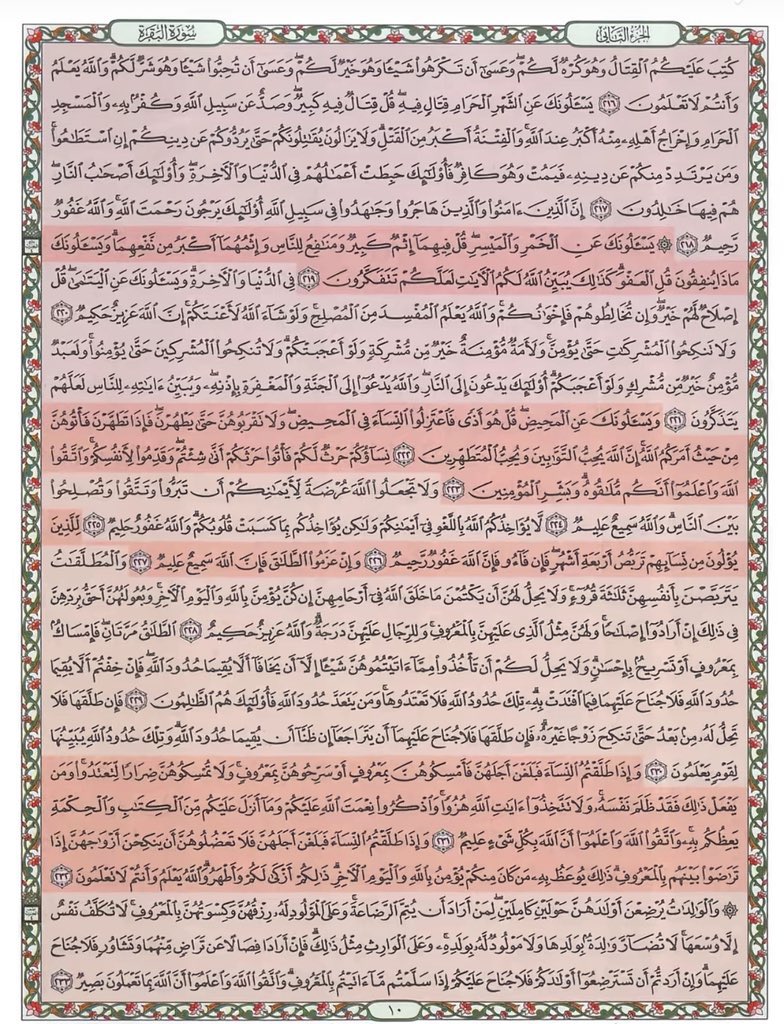 سُورَةُ البَقَرَةِ
الجُزْءُ الثَّانِي
كُتِبَ عَلَيْكُمُ الْقِتَالُ وَهُوَ كُرْهٌ لَّكُمْ ۖ وَعَسَىٰ أَن تَكْرَهُوا شَيْئًا وَهُوَ خَيْرٌ لَّكُمْ ۖ وَعَسَىٰ أَن تُحِبُّوا شَيْئًا وَهُوَ شَرٌّ لَّكُمْ ۗ وَاللَّهُ يَعْلَمُ
وَأَنتُمْ لَا تَعْلَمُونَ ٢١٦ يَسْـَٔلُونَكَ عَنِ الشَّهْرِ الْحَرَامِ قِتَالٍ فِيهِ ۖ قُلْ قِتَالٌ فِيهِ كَبِيرٌ ۖ وَصَدٌّ عَن سَبِيلِ اللَّهِ وَكُفْرٌۢ بِهِۦ وَالْمَسْجِدِ
الْحَرَامِ وَإِخْرَاجُ أَهْلِهِۦ مِنْهُ أَكْبَرُ عِندَ اللَّهِ ۚ وَالْفِتْنَةُ أَكْبَرُ مِنَ الْقَتْلِ ۗ وَلَا يَزَالُونَ يُقَاتِلُونَكُمْ حَتَّىٰ يَرُدُّوكُمْ عَن دِينِكُمْ إِنِ اسْتَطَاعُوا ۚ
وَمَن يَرْتَدِدْ مِنكُمْ عَن دِينِهِۦ فَيَمُتْ وَهُوَ كَافِرٌ فَأُولَٰئِكَ حَبِطَتْ أَعْمَالُهُمْ فِي الدُّنْيَا وَالْآخِرَةِ ۖ وَأُولَٰئِكَ أَصْحَابُ النَّارِ ۖ
هُمْ فِيهَا خَالِدُونَ ٢١٧ إِنَّ الَّذِينَ ءَامَنُوا وَالَّذِينَ هَاجَرُوا وَجَاهَدُوا فِي سَبِيلِ اللَّهِ أُولَٰئِكَ يَرْجُونَ رَحْمَتَ اللَّهِ ۚ وَاللَّهُ غَفُورٌ
رَّحِيمٌ ٢١٨ ۞ يَسْـَٔلُونَكَ عَنِ الْخَمْرِ وَالْمَيْسِرِ ۖ قُلْ فِيهِمَا إِثْمٌ كَبِيرٌ وَمَنَافِعُ لِلنَّاسِ وَإِثْمُهُمَا أَكْبَرُ مِن نَّفْعِهِمَا ۗ وَيَسْـَٔلُونَكَ
مَاذَا يُنفِقُونَ قُلِ الْعَفْوَ ۗ كَذَٰلِكَ يُبَيِّنُ اللَّهُ لَكُمُ الْآيَاتِ لَعَلَّكُمْ تَتَفَكَّرُونَ ٢١٩ فِي الدُّنْيَا وَالْآخِرَةِ ۗ وَيَسْـَٔلُونَكَ عَنِ الْيَتَامَىٰ ۖ قُلْ
إِصْلَاحٌ لَّهُمْ خَيْرٌ ۖ وَإِن تُخَالِطُوهُمْ فَإِخْوَانُكُمْ ۚ وَاللَّهُ يَعْلَمُ الْمُفْسِدَ مِنَ الْمُصْلِحِ ۚ وَلَوْ شَاءَ اللَّهُ لَأَعْنَتَكُمْ ۚ إِنَّ اللَّهَ عَزِيزٌ حَكِيمٌ ٢٢٠
وَلَا تَنكِحُوا الْمُشْرِكَاتِ حَتَّىٰ يُؤْمِنَّ ۚ وَلَأَمَةٌ مُّؤْمِنَةٌ خَيْرٌ مِّن مُّشْرِكَةٍ وَلَوْ أَعْجَبَتْكُمْ ۗ وَلَا تُنكِحُوا الْمُشْرِكِينَ حَتَّىٰ يُؤْمِنُوا ۚ وَلَعَبْدٌ
مُّؤْمِنٌ خَيْرٌ مِّن مُّشْرِكٍ وَلَوْ أَعْجَبَكُمْ ۗ أُولَٰئِكَ يَدْعُونَ إِلَى النَّارِ ۖ وَاللَّهُ يَدْعُوا إِلَى الْجَنَّةِ وَالْمَغْفِرَةِ بِإِذْنِهِۦ ۖ وَيُبَيِّنُ ءَايَاتِهِۦ لِلنَّاسِ لَعَلَّهُمْ
يَتَذَكَّرُونَ ٢٢١ وَيَسْـَٔلُونَكَ عَنِ الْمَحِيضِ ۖ قُلْ هُوَ أَذًى فَاعْتَزِلُوا النِّسَاءَ فِي الْمَحِيضِ ۖ وَلَا تَقْرَبُوهُنَّ حَتَّىٰ يَطْهُرْنَ ۖ فَإِذَا تَطَهَّرْنَ فَأْتُوهُنَّ
مِنْ حَيْثُ أَمَرَكُمُ اللَّهُ ۚ إِنَّ اللَّهَ يُحِبُّ التَّوَّابِينَ وَيُحِبُّ الْمُتَطَهِّرِينَ ٢٢٢ نِسَاؤُكُمْ حَرْثٌ لَّكُمْ فَأْتُوا حَرْثَكُمْ أَنَّىٰ شِئْتُمْ ۖ وَقَدِّمُوا لِأَنفُسِكُمْ ۚ وَاتَّقُوا
اللَّهَ وَاعْلَمُوا أَنَّكُم مُّلَاقُوهُ ۗ وَبَشِّرِ الْمُؤْمِنِينَ ٢٢٣ وَلَا تَجْعَلُوا اللَّهَ عُرْضَةً لِّأَيْمَانِكُمْ أَن تَبَرُّوا وَتَتَّقُوا وَتُصْلِحُوا
بَيْنَ النَّاسِ ۗ وَاللَّهُ سَمِيعٌ عَلِيمٌ ٢٢٤ لَّا يُؤَاخِذُكُمُ اللَّهُ بِاللَّغْوِ فِي أَيْمَانِكُمْ وَلَٰكِن يُؤَاخِذُكُم بِمَا كَسَبَتْ قُلُوبُكُمْ ۗ وَاللَّهُ غَفُورٌ حَلِيمٌ ٢٢٥ لِّلَّذِينَ
يُؤْلُونَ مِن نِّسَائِهِمْ تَرَبُّصُ أَرْبَعَةِ أَشْهُرٍ ۖ فَإِن فَاءُو فَإِنَّ اللَّهَ غَفُورٌ رَّحِيمٌ ٢٢٦ وَإِنْ عَزَمُوا الطَّلَاقَ فَإِنَّ اللَّهَ سَمِيعٌ عَلِيمٌ ٢٢٧ وَالْمُطَلَّقَاتُ
يَتَرَبَّصْنَ بِأَنفُسِهِنَّ ثَلَاثَةَ قُرُوءٍ ۚ وَلَا يَحِلُّ لَهُنَّ أَن يَكْتُمْنَ مَا خَلَقَ اللَّهُ فِي أَرْحَامِهِنَّ إِن كُنَّ يُؤْمِنَّ بِاللَّهِ وَالْيَوْمِ الْآخِرِ ۚ وَبُعُولَتُهُنَّ أَحَقُّ بِرَدِّهِنَّ
فِي ذَٰلِكَ إِنْ أَرَادُوا إِصْلَاحًا ۚ وَلَهُنَّ مِثْلُ الَّذِي عَلَيْهِنَّ بِالْمَعْرُوفِ ۚ وَلِلرِّجَالِ عَلَيْهِنَّ دَرَجَةٌ ۗ وَاللَّهُ عَزِيزٌ حَكِيمٌ ٢٢٨ الطَّلَاقُ مَرَّتَانِ ۖ فَإِمْسَاكٌ
بِمَعْرُوفٍ أَوْ تَسْرِيحٌ بِإِحْسَانٍ ۗ وَلَا يَحِلُّ لَكُمْ أَن تَأْخُذُوا مِمَّا ءَاتَيْتُمُوهُنَّ شَيْئًا إِلَّا أَن يَخَافَا أَلَّا يُقِيمَا حُدُودَ اللَّهِ ۖ فَإِنْ خِفْتُمْ أَلَّا يُقِيمَا
حُدُودَ اللَّهِ فَلَا جُنَاحَ عَلَيْهِمَا فِيمَا افْتَدَتْ بِهِۦ ۗ تِلْكَ حُدُودُ اللَّهِ فَلَا تَعْتَدُوهَا ۚ وَمَن يَتَعَدَّ حُدُودَ اللَّهِ فَأُولَٰئِكَ هُمُ الظَّالِمُونَ ٢٢٩ فَإِن طَلَّقَهَا فَلَا
تَحِلُّ لَهُۥ مِنۢ بَعْدُ حَتَّىٰ تَنكِحَ زَوْجًا غَيْرَهُۥ ۗ فَإِن طَلَّقَهَا فَلَا جُنَاحَ عَلَيْهِمَا أَن يَتَرَاجَعَا إِن ظَنَّا أَن يُقِيمَا حُدُودَ اللَّهِ ۗ وَتِلْكَ حُدُودُ اللَّهِ يُبَيِّنُهَا
لِقَوْمٍ يَعْلَمُونَ ٢٣٠ وَإِذَا طَلَّقْتُمُ النِّسَاءَ فَبَلَغْنَ أَجَلَهُنَّ فَأَمْسِكُوهُنَّ بِمَعْرُوفٍ أَوْ سَرِّحُوهُنَّ بِمَعْرُوفٍ ۚ وَلَا تُمْسِكُوهُنَّ ضِرَارًا لِّتَعْتَدُوا ۚ وَمَن
يَفْعَلْ ذَٰلِكَ فَقَدْ ظَلَمَ نَفْسَهُۥ ۚ وَلَا تَتَّخِذُوا ءَايَاتِ اللَّهِ هُزُوًا ۚ وَاذْكُرُوا نِعْمَتَ اللَّهِ عَلَيْكُمْ وَمَا أَنزَلَ عَلَيْكُم مِّنَ الْكِتَابِ وَالْحِكْمَةِ
يَعِظُكُم بِهِۦ ۚ وَاتَّقُوا اللَّهَ وَاعْلَمُوا أَنَّ اللَّهَ بِكُلِّ شَيْءٍ عَلِيمٌ ٢٣١ وَإِذَا طَلَّقْتُمُ النِّسَاءَ فَبَلَغْنَ أَجَلَهُنَّ فَلَا تَعْضُلُوهُنَّ أَن يَنكِحْنَ أَزْوَاجَهُنَّ إِذَا
تَرَاضَوْا بَيْنَهُم بِالْمَعْرُوفِ ۗ ذَٰلِكَ يُوعَظُ بِهِۦ مَن كَانَ مِنكُمْ يُؤْمِنُ بِاللَّهِ وَالْيَوْمِ الْآخِرِ ۗ ذَٰلِكُمْ أَزْكَىٰ لَكُمْ وَأَطْهَرُ ۗ وَاللَّهُ يَعْلَمُ وَأَنتُمْ لَا تَعْلَمُونَ ٢٣٢
۞ وَالْوَالِدَاتُ يُرْضِعْنَ أَوْلَادَهُنَّ حَوْلَيْنِ كَامِلَيْنِ ۖ لِمَنْ أَرَادَ أَن يُتِمَّ الرَّضَاعَةَ ۚ وَعَلَى الْمَوْلُودِ لَهُۥ رِزْقُهُنَّ وَكِسْوَتُهُنَّ بِالْمَعْرُوفِ ۚ لَا تُكَلَّفُ نَفْسٌ
إِلَّا وُسْعَهَا ۚ لَا تُضَارَّ وَالِدَةٌۢ بِوَلَدِهَا وَلَا مَوْلُودٌ لَّهُۥ بِوَلَدِهِۦ ۚ وَعَلَى الْوَارِثِ مِثْلُ ذَٰلِكَ ۗ فَإِنْ أَرَادَا فِصَالًا عَن تَرَاضٍ مِّنْهُمَا وَتَشَاوُرٍ فَلَا جُنَاحَ
عَلَيْهِمَا ۗ وَإِنْ أَرَدتُّمْ أَن تَسْتَرْضِعُوا أَوْلَادَكُمْ فَلَا جُنَاحَ عَلَيْكُمْ إِذَا سَلَّمْتُم مَّا ءَاتَيْتُم بِالْمَعْرُوفِ ۗ وَاتَّقُوا اللَّهَ وَاعْلَمُوا أَنَّ اللَّهَ بِمَا تَعْمَلُونَ بَصِيرٌ ٢٣٣
١٠